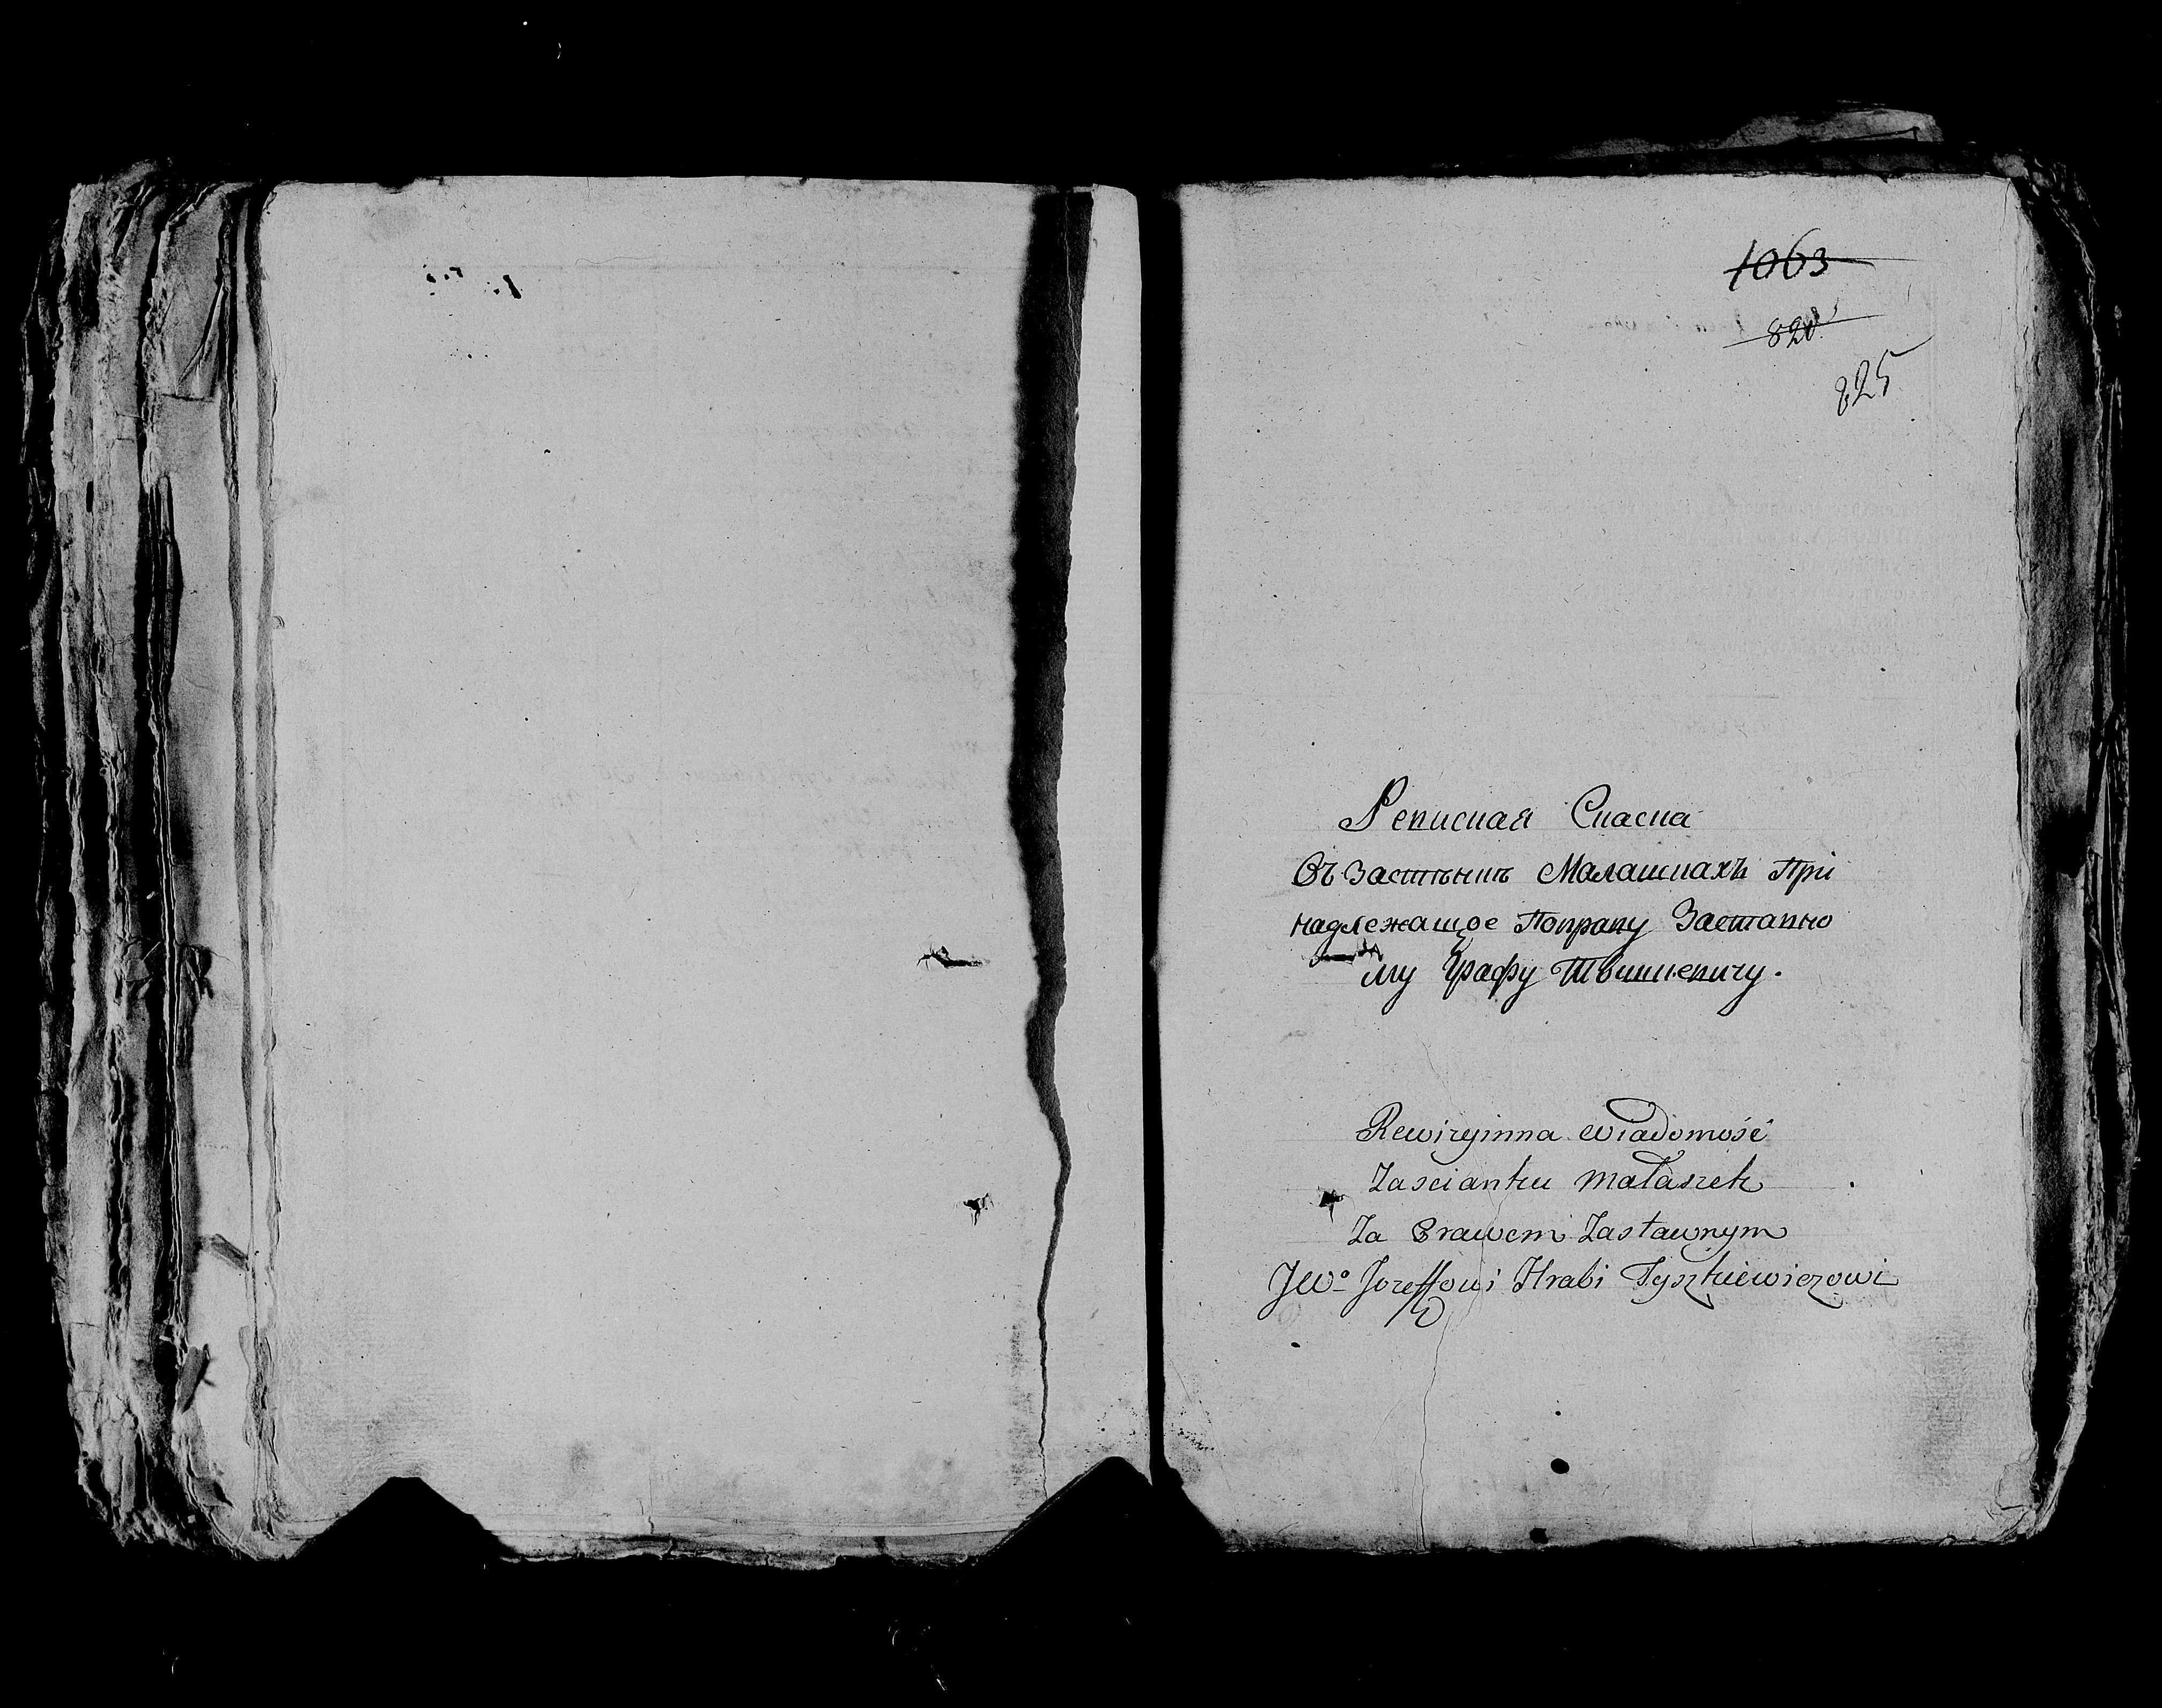 1063
820
825
Ревисная Скаска
Въ Застѣнкѣ Малашкахъ При
надлежащое Поправу Заставно
му Графу Тышкевичу.
Rewizyinna wiadomość
Zascianku Małaszek
Za Prawem Zastawnym
JWo Jozeffowi Hrabi Tyszkiewiczowi